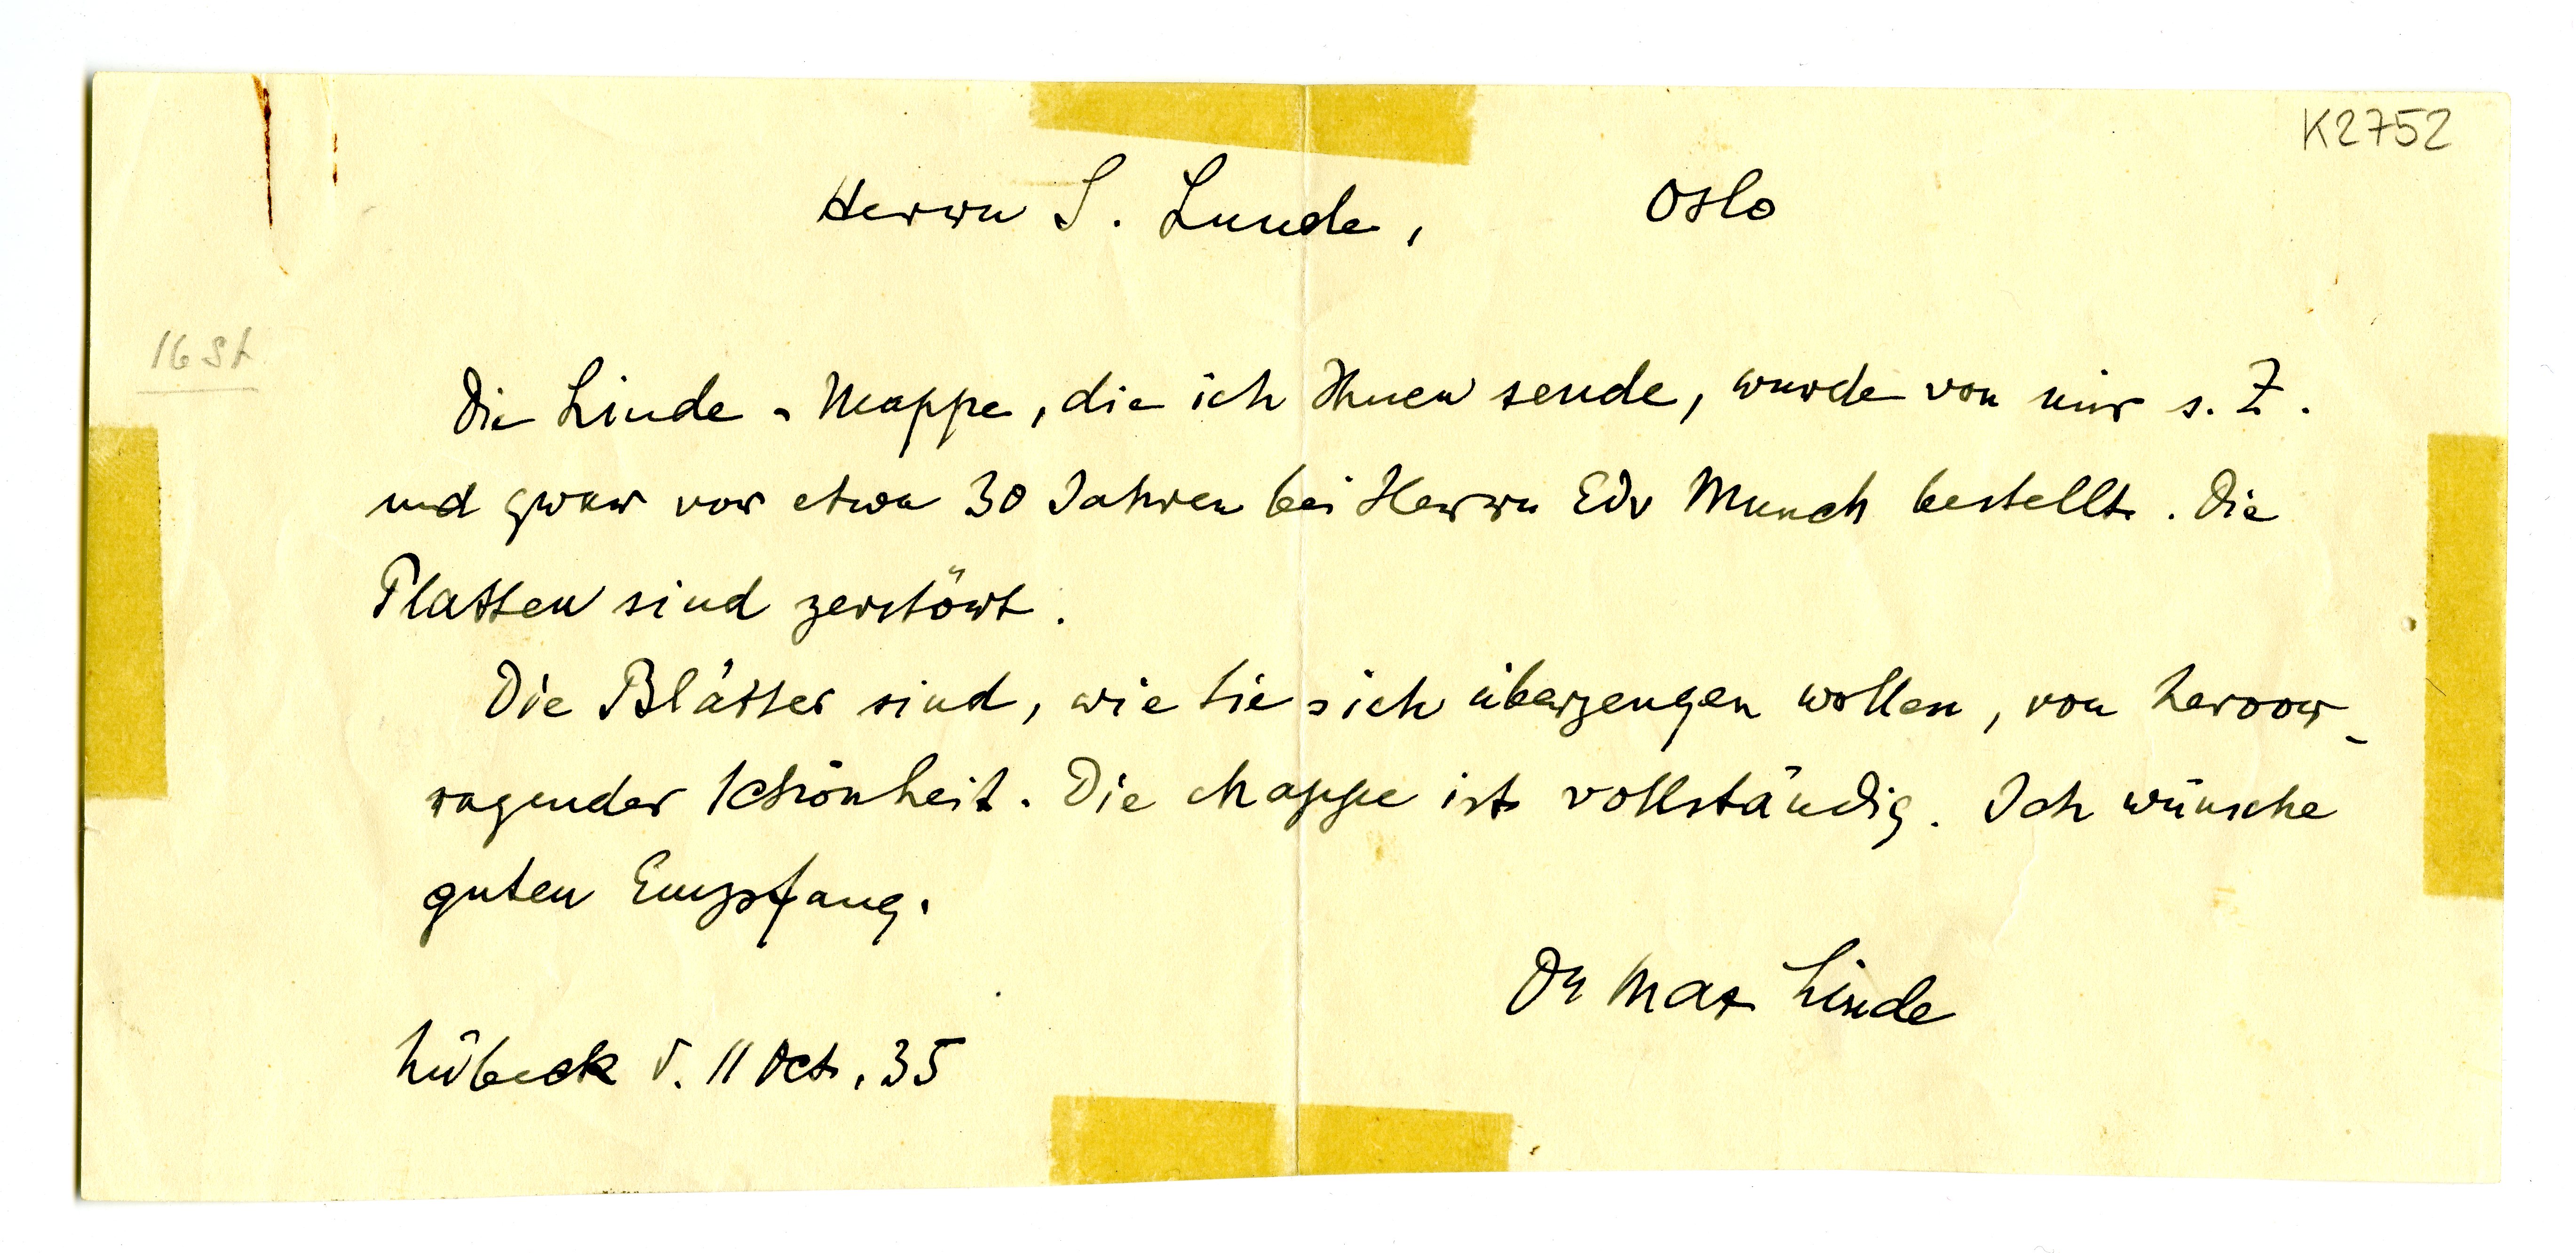 K2752
Herrn S. Lunde, Oslo
16 St
Die Linde-Mappe, die ich Ihnen sende, wurde von mir s. Z.
und zwar vor etwa 30 Jahren bei Herrn Edv Munch bestellt. Die
Platten sind zerstört.
Die Blätter sind, wie Sie sich überzeugen wollen, von hervor-
ragender Schönheit. Die Mappe ist vollständig. Ich wünsche
guten Empfang.
Dr Max Linde
Lübeck d. 11 Oct. 35